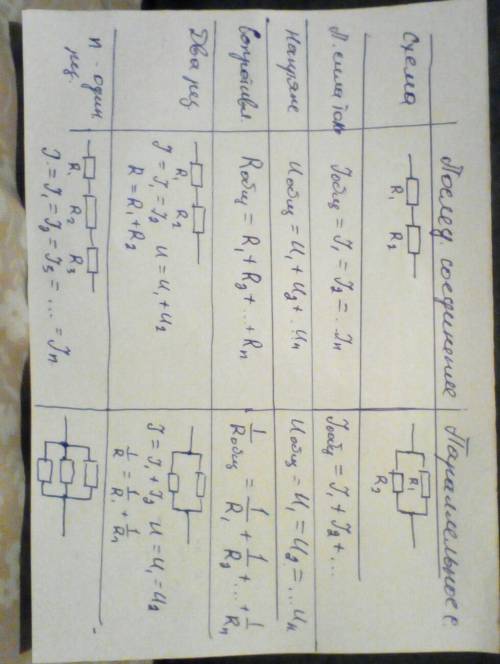 Послед. соединение
Параллельное с.
Схема
R₁ R₂
R₁
R₂
П. сила тока
Iобщ = I₁ = I₂ = .. In
Iобщ = I₁ + I₂ + ...
Напряже
Uобщ = U₁ + U₂ + .. Un
Uобщ = U₁ = U₂ = ... Un
Сопротивл.
Rобщ = R₁ + R₂ + .. + Rn
1/Rобщ = 1/R₁ + 1/R₂ + ... + 1/Rn
Два рез
R₁ R₂
I = I₁ = I₂ U = U₁ + U₂
R = R₁ + R₂
I = I₁ + I₂ U = U₁ = U₂
1/R = 1/R₁ + 1/Rn
n - один
рез.
R₁ R₂ R₃
I = I₁ = I₂ = I₃ = ... = In